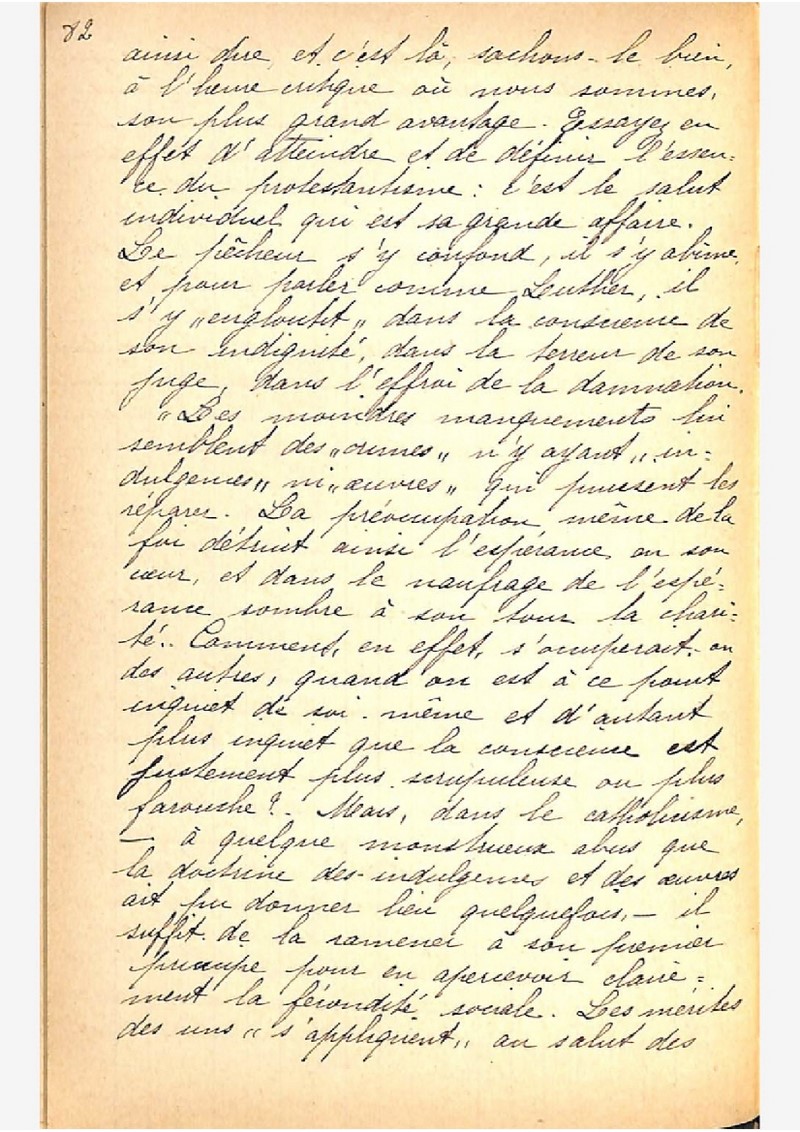 82
ainsi dire, et c'est là, sachons-le bien,
à l'heure critique où nous sommes,
son plus grand avantage. Essayez en
effet d'atteindre et de définir l'essen=
ce du protestantisme : c'est le salut
individuel qui est sa grande affaire.
Le pêcheur s'y confond, il s'y abîme,
et pour parler comme Luther, il
s'y „engloutit„ dans la conscience de
son indignité, dans la terreur de son
juge, dans l'effroi de la damnation.
„Les moindres manquements lui
semblent des „crimes„ n'y ayant „in=
dulgences„ ni „œuvres„ qui puissent les
réparer. La préoccupation même de la
foi détruit ainsi l'espérance en son
cœur, et dans le naufrage de l'espé=
rance sombre à son tour la chari=
té.. Comment, en effet, s'occuperait-on
des autres, quand on est à ce point
inquiet de soi-même et d'autant
plus inquiet que la conscience est
justement plus scrupuleuse ou plus
farouche?. Mais, dans le catholicisme,
— à quelque monstrueux abus que
la doctrine des-indulgences et des œuvres
ait pu donner lieu quelquefois, — il
suffit de la ramener à son premier
principe pour en apercevoir claire=
ment la fécondité sociale. Les mérites
des uns „s'appliquent„ au salut des